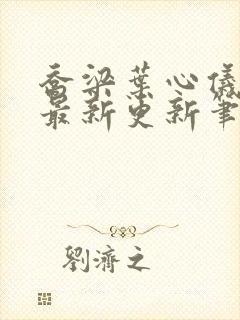 喬梁葉心儀
最新更新筆
劉濟之